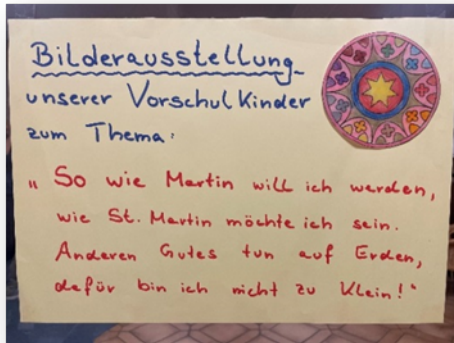 Bilderausstellung
unserer Vorschulkinder
zum Thema:
„So wie Martin will ich werden,
wie St. Martin möchte ich sein.
Anderen Gutes tun auf Erden,
dafür bin ich nicht zu klein!“